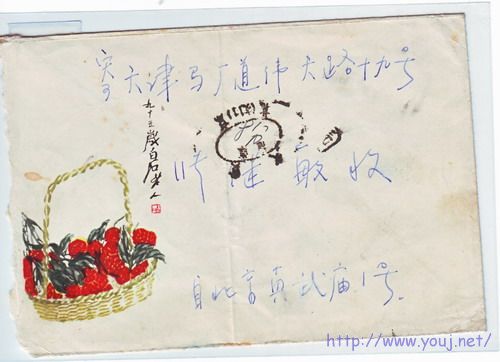 寄天津马厂道伟大路十九号
九十三岁白石老人
建敏收
自北京真武庙1号
http://www.youj.net/